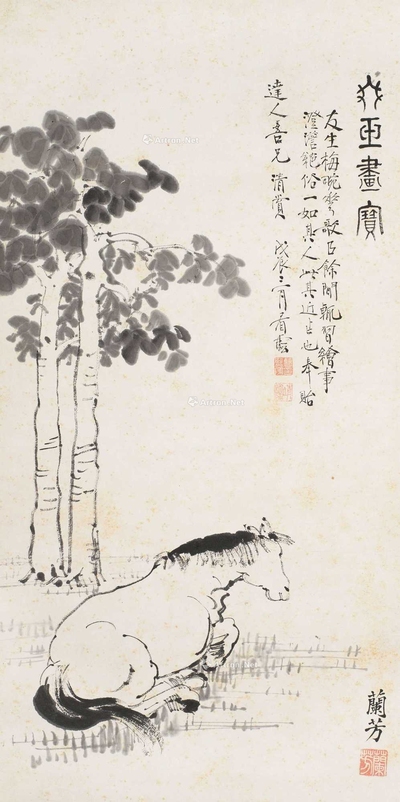 畫寶
友生梅畹華歌餘間輒習繪事
澄澹絕俗一如其人此其近也奉貽
達人吾兄清賞 戊辰三月
蘭芳
蘭芳
Artron.Net